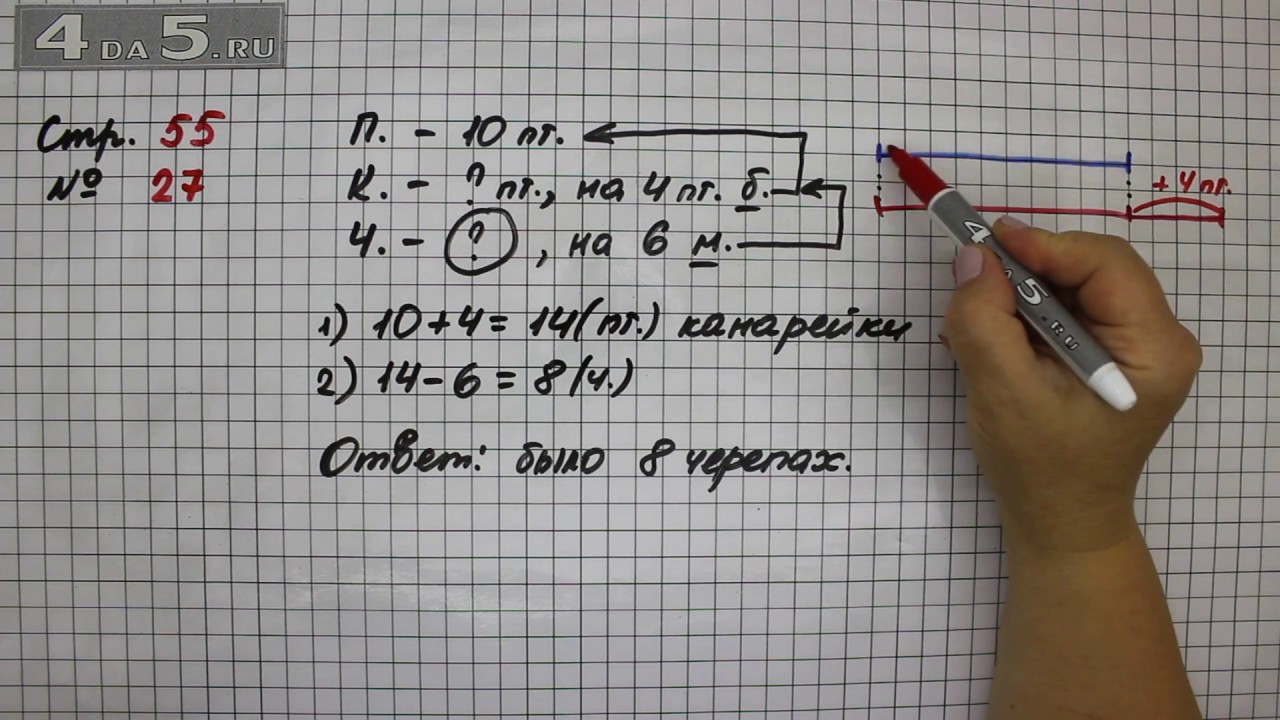 4DA5.RU
Стр. 55
№ 27
П. - 10 пт.
К. - ? пт., на 4 пт. б.
Ч. - ? , на 6 м.
+ 4 пт.
1) 10 + 4 = 14 (пт.) канарейки
2) 14 - 6 = 8 (ч.)
Ответ: было 8 черепах.
4DA5.RU